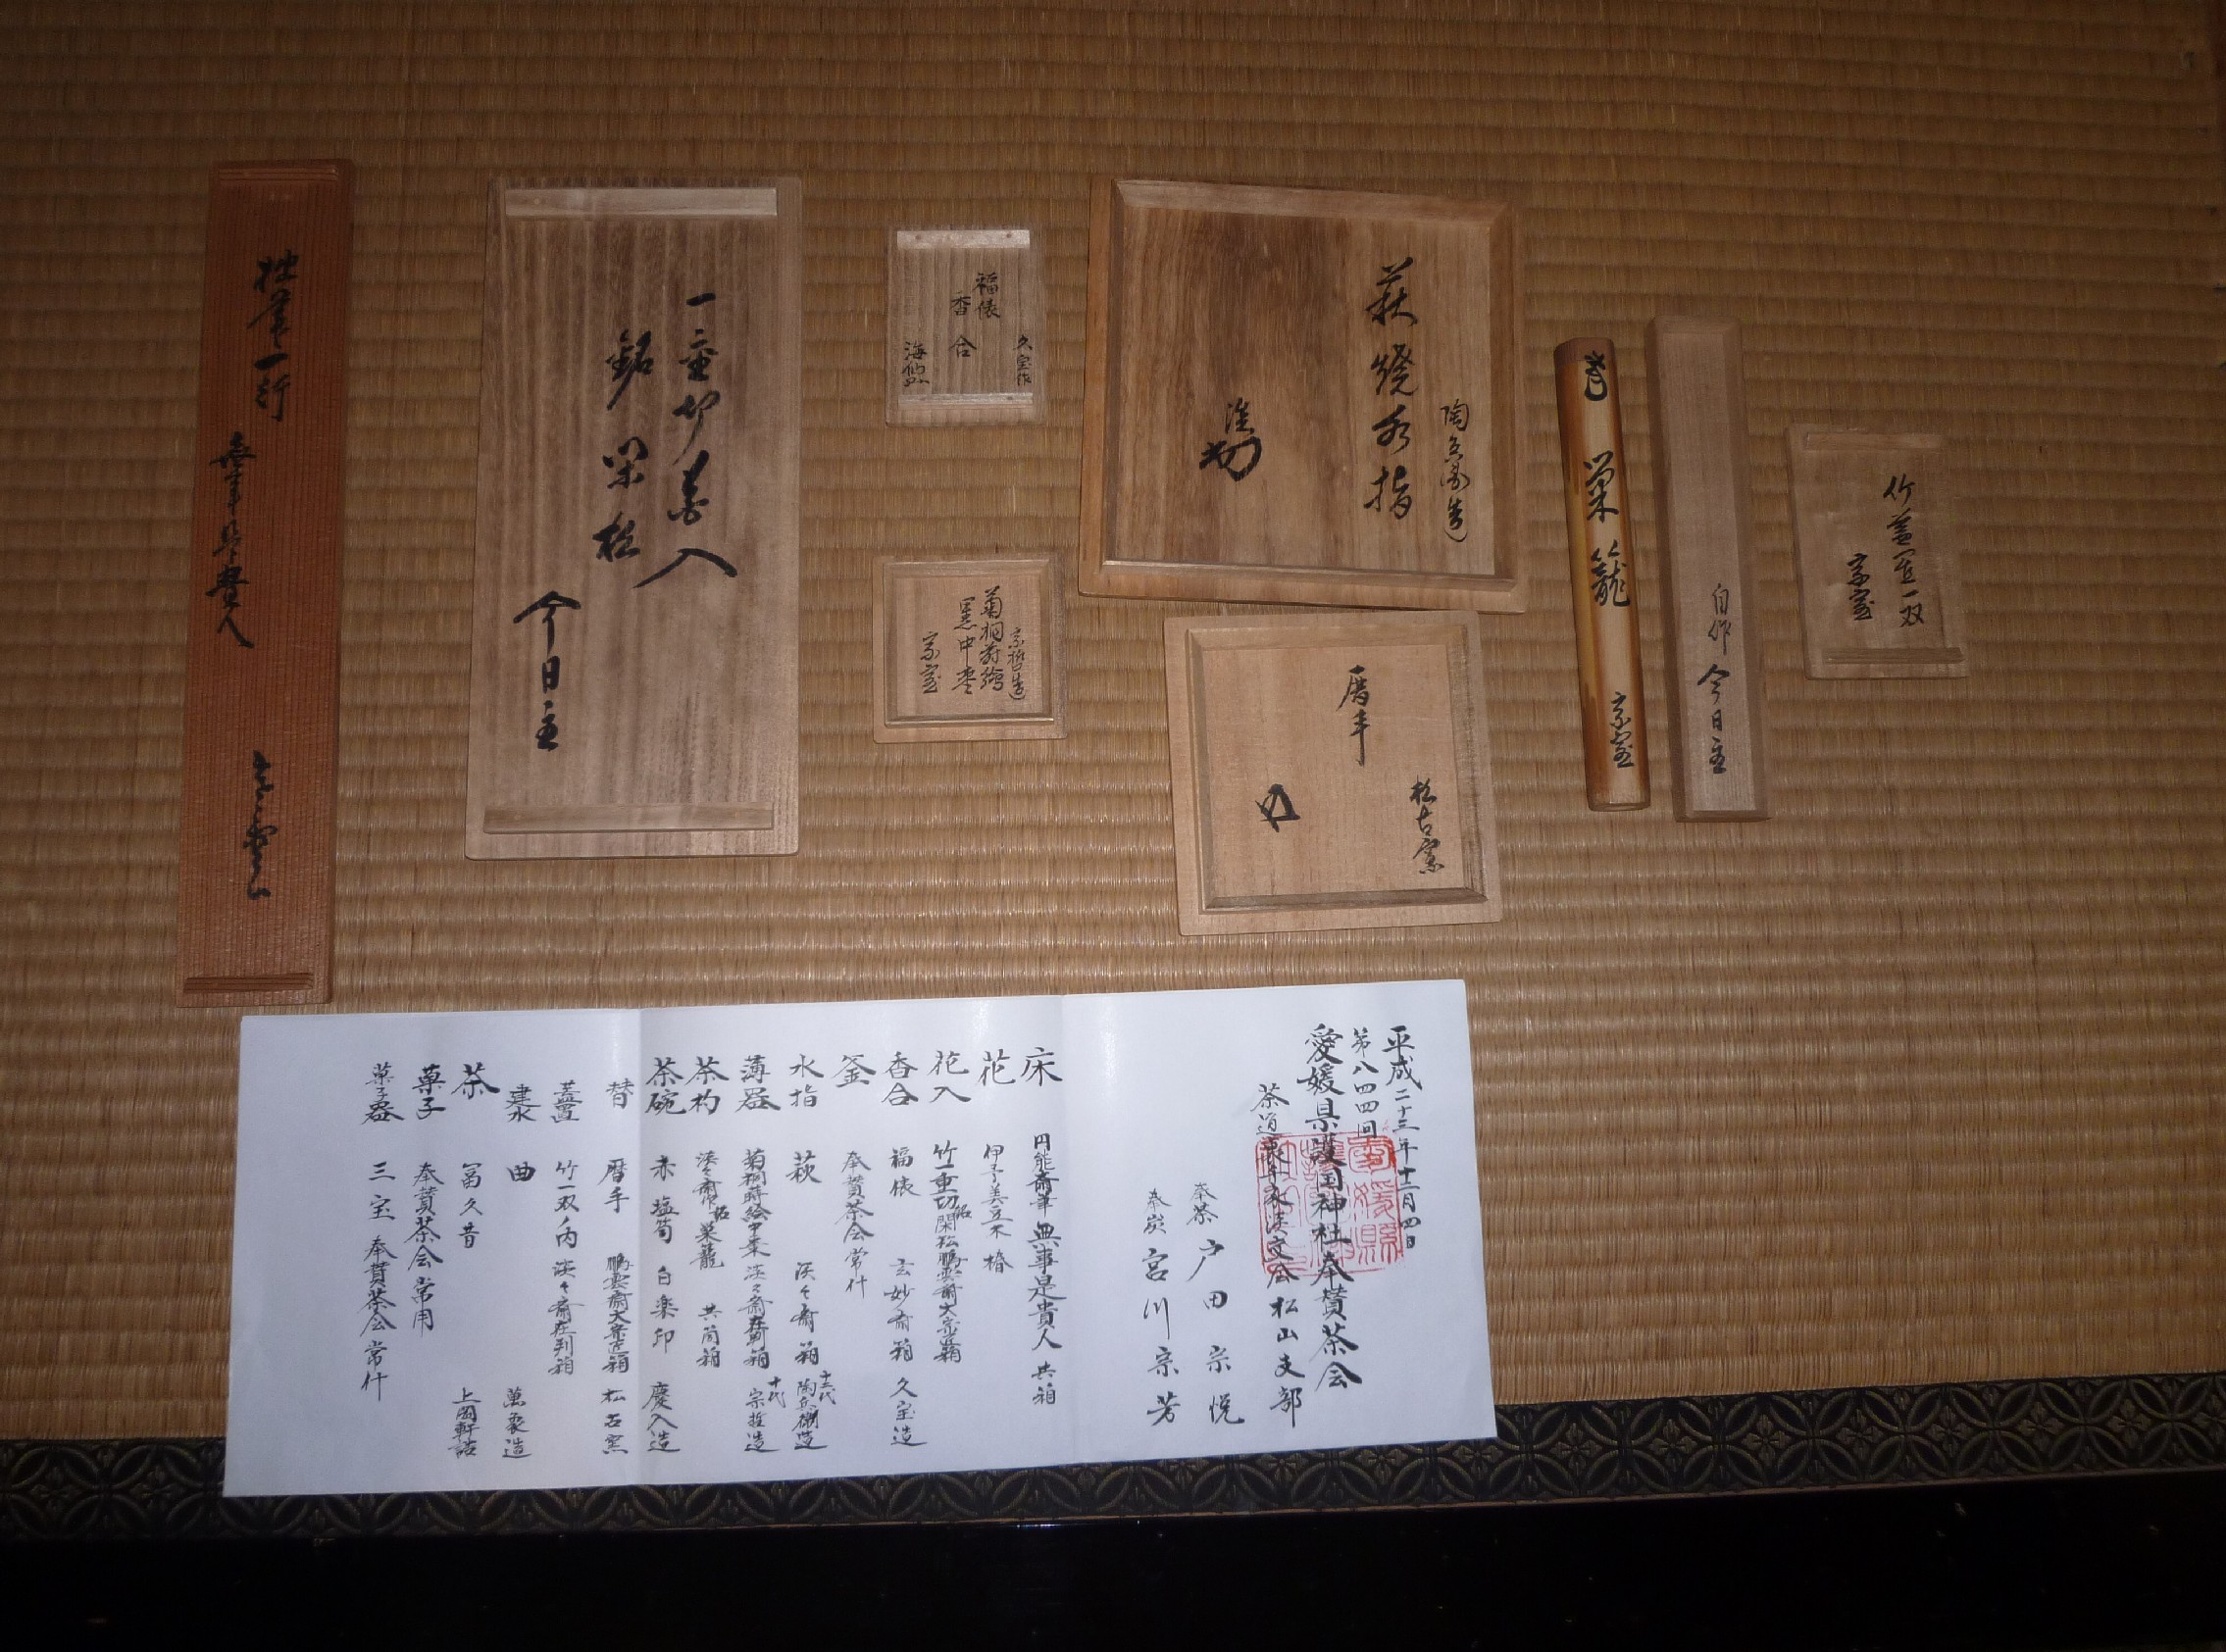 一重切花入
銘 閑松
今日主
久宝作
福俵
香合
宗哲造
菊桐蒔絵
黒中棗
宗室
陶兵衛造
萩焼水指
松古窯
暦手
巣籠
宗室
自作 今日主
竹蓋置一双
宗室
平成二十三年十二月四日
第八四四回
愛媛県護国神社奉賛茶会
茶道裏千家淡交会松山支部
奉茶 戸田宗悦
奉炭 宮川宗芳
床 円能斎筆 無事是貴人 共箱
花 伊予美立木 椿
花入 竹一重切 銘閑松 鵬雲斎大宗匠箱
香合 福俵 玄妙斎箱 久宝造
釜 奉賛茶会常什
水指 萩 淡々斎箱 十二代陶兵衛造
薄器 菊桐蒔絵中棗 淡々斎在判箱 十代宗哲造
茶杓 淡々斎作 銘巣籠 共筒箱
茶碗 赤 塩筍 白楽印 慶入造
替 暦手 鵬雲斎大宗匠箱 松古窯
蓋置 竹一双ノ内 淡々斎在判箱
建水 曲 萬象造
茶 冨久昔 上岡軒詰
菓子 奉賛茶会常用
菓子器 三宝 奉賛茶会常什